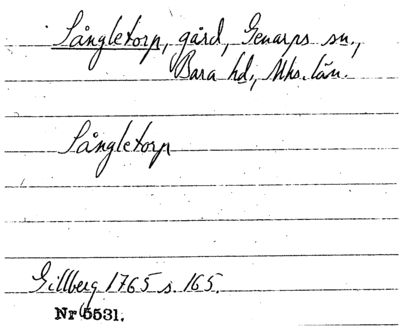 Sångletorp, gård, Genarps sn.,
Bara hd., Mhs. län.
Sångletorp
Gillberg 1765 s. 165.
Nr 5531.